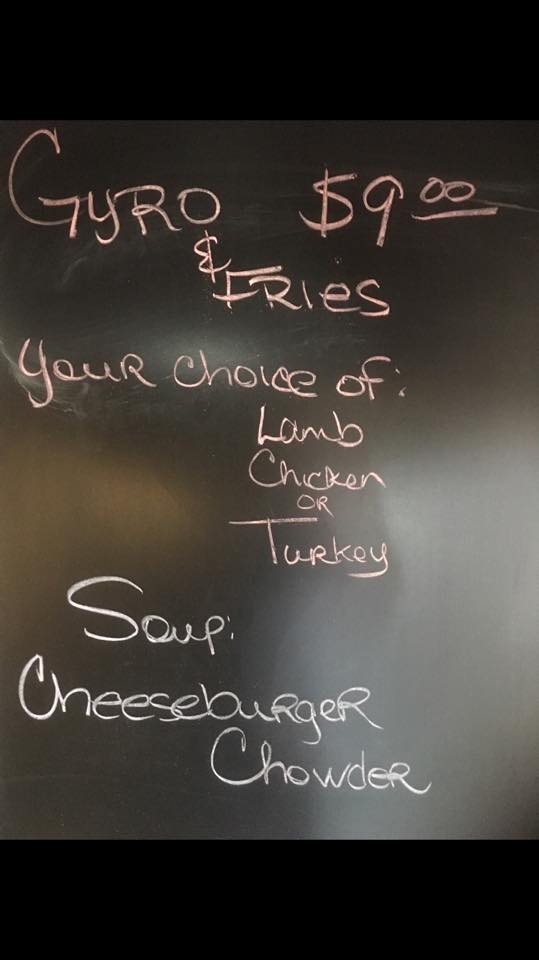 GYRO $9.00
& FRIES
YOUR CHOICE OF:
Lamb
Chicken
OR
Turkey
Soup:
CheesebuRgeR
ChowdeR